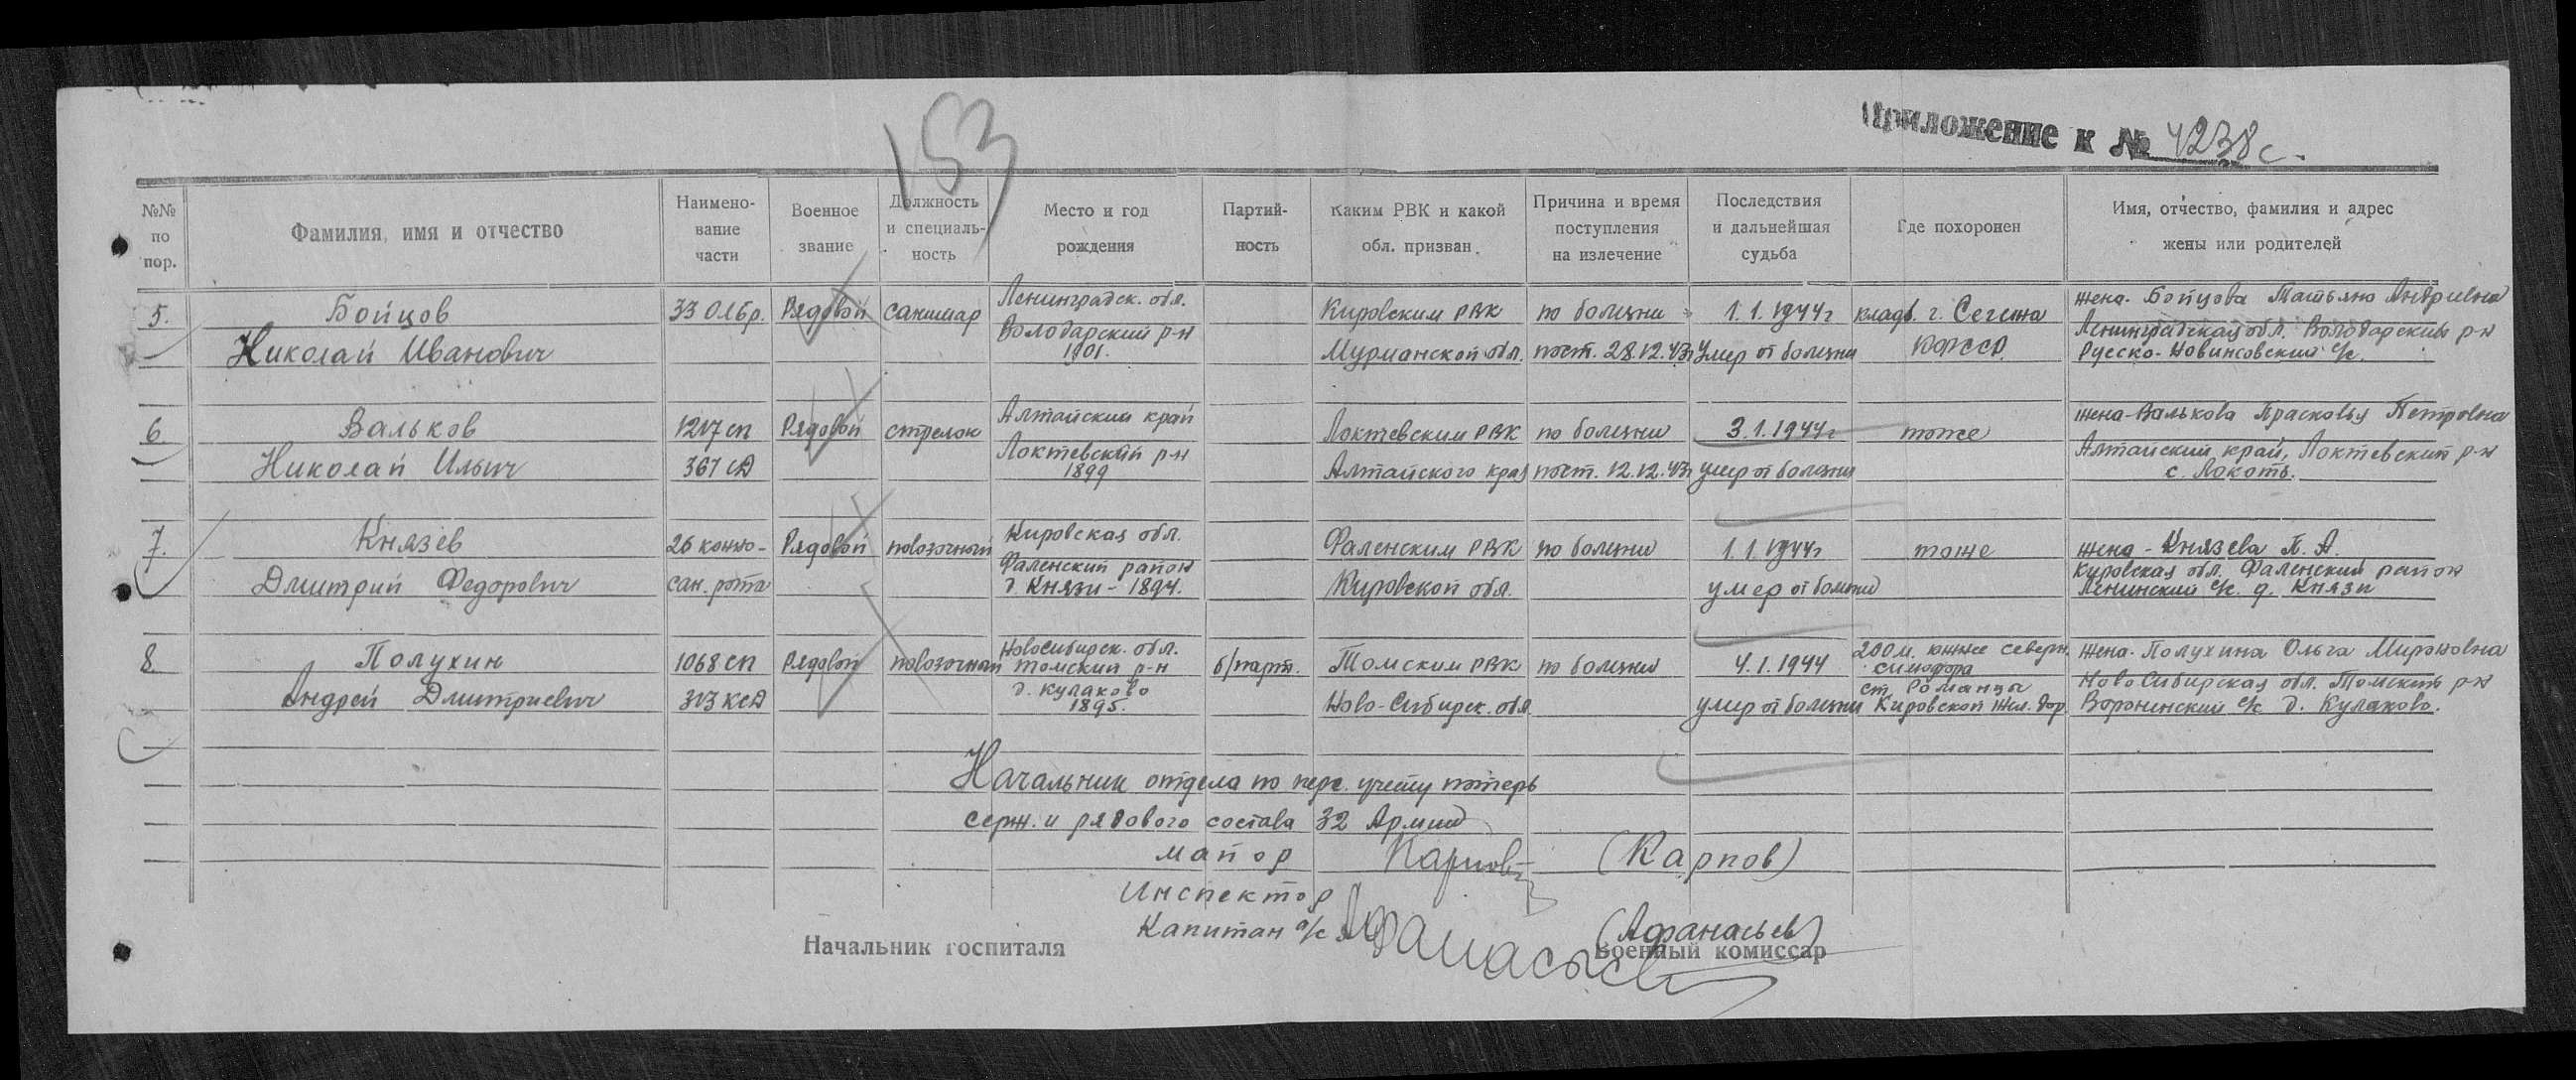 153
Приложение к № 4238с.
№№ по пор.
Фамилия, имя и отчество
Наимено-
вание
части
Военное
звание
Должность
и специаль-
ность
Место и год
рождения
Партий-
ность
Каким РВК и какой
обл. призван
Причина и время
поступления
на излечение
Последствия
и дальнейшая
судьба
Где похоронен
Имя, отчество, фамилия и адрес
жены или родителей
5.
Бойцов
Николай Иванович
33 Олбр.
Рядовой
санитар
Ленинградск. обл.
Володарский р-н
1901.
Кировским РВК
Мурманской обл.
по болезни
пост. 28.12.43г
1.1.1944г
Умер от болезни
кладб. г. Сегежа
КФССР
жена. Бойцова Татьяна Андриевна
Ленинградская обл. Володарский р-н
Русско-Новинсовский с/с.
6
Вальков
Николай Ильич
1217 сп
367 СД
Рядовой
стрелок
Алтайский край
Локтевский р-н
1899
Локтевским РВК
Алтайского края
по болезни
пост. 12.12.43г
3.1.1944г
умер от болезни
тоже
жена-Валькова Прасковья Петровна
Алтайский край, Локтевский р-н
с. Локоть.
7.
Князев
Дмитрий Федорович
26 конно-
сан. рота
Рядовой
повозочный
Кировская обл.
Фаленский район
д. Князи - 1894.
Фаленским РВК
Кировской обл.
по болезни
1.1.1944г
умер от болезни
тоже
жена - Князева П. А.
Кировская обл. Фаленский район
Ленинский с/с. д. Князи
8.
Полухин
Андрей Дмитриевич
1068 сп
313 КСД
Рядовой
повозочный
Новосибирск. обл.
Томский р-н
д. Кулаково
1895.
б/парт.
Томским РВК
Ново-Сибирск. обл
по болезни
4.1.1944
умер от болезни
200 м. южнее северн.
симофора
ст. Романцы
Кировской жел. дор
жена. Полухина Ольга Мироновна
НовоСибирская обл. Томский р-н
Воронинский с/с д. Кулаково.
Начальник отдела по перс. учету потерь
серж. и рядового состава 32 Армии
майор Карпов (Карпов)
Инспектор
Капитан а/с Афанасьев (Афанасьев)
Начальник госпиталя
Военный комиссар